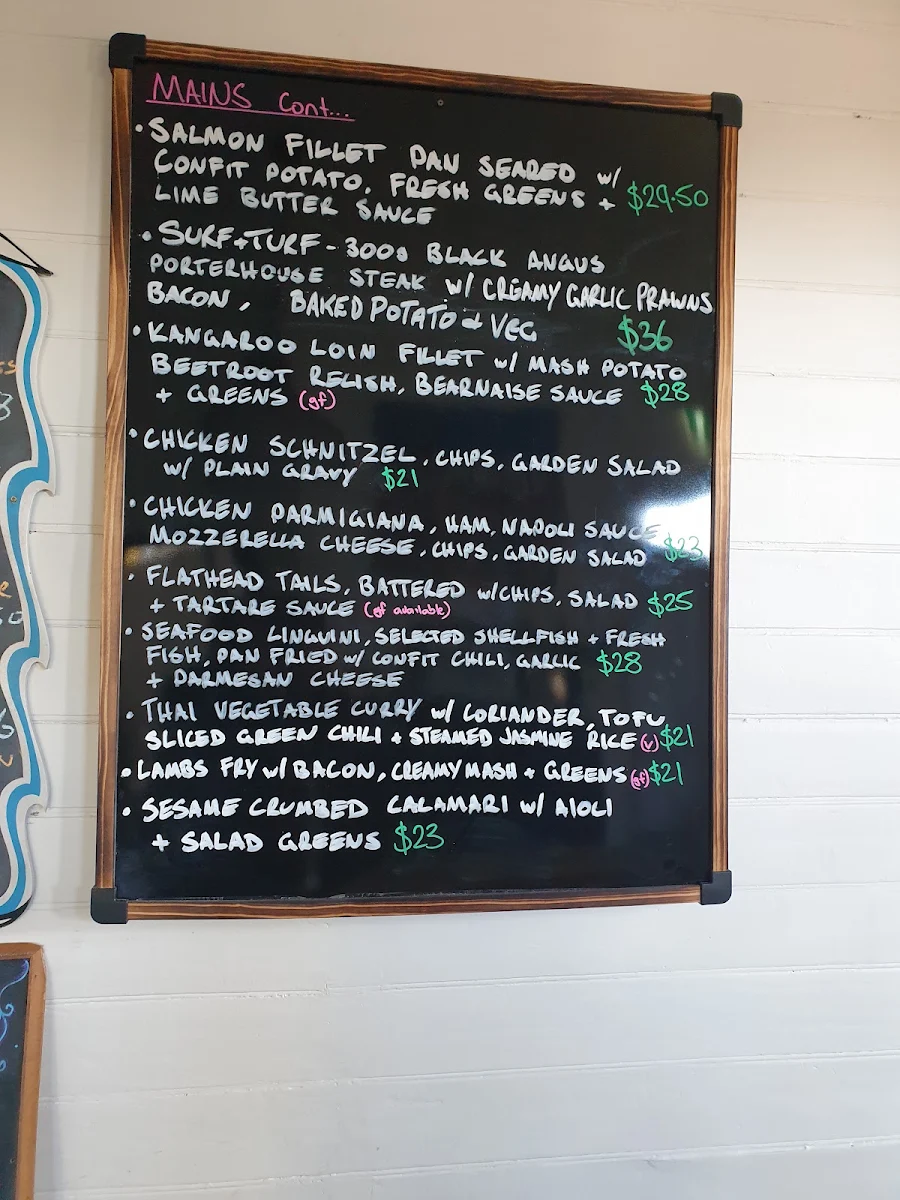 MAINS Cont...
• SALMON FILLET PAN SEARED w/
CONFIT POTATO, FRESH GREENS + $29.50
LIME BUTTER SAUCE
• SURF+TURF - 300g BLACK ANGUS
PORTERHOUSE STEAK w/ CREAMY GARLIC PRAWNS
BACON, BAKED POTATO & VEG $36
• KANGAROO LOIN FILLET w/ MASH POTATO
BEETROOT RELISH, BEARNAISE SAUCE $28
+ GREENS (gf)
• CHICKEN SCHNITZEL, CHIPS, GARDEN SALAD
w/ PLAIN GRAVY $21
• CHICKEN PARMIGIANA, HAM, NAPOLI SAUCE
MOZZERELLA CHEESE, CHIPS, GARDEN SALAD $23
• FLATHEAD TAILS, BATTERED w/CHIPS, SALAD $25
+ TARTARE SAUCE (gf available)
• SEAFOOD LINGUINI, SELECTED SHELLFISH + FRESH
FISH, PAN FRIED w/ CONFIT CHILI, GARLIC $28
+ PARMESAN CHEESE
• THAI VEGETABLE CURRY w/ CORIANDER, TOFU
SLICED GREEN CHILI + STEAMED JASMINE RICE (v) $21
• LAMBS FRY w/ BACON, CREAMY MASH + GREENS (gf) $21
• SESAME CRUMBED CALAMARI w/ AIOLI
+ SALAD GREENS $23